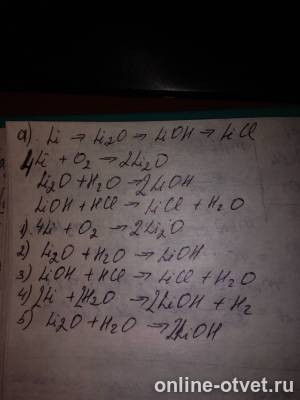 а). Li → Li2O → LiOH → LiCl
4Li + O2 → 2Li2O
Li2O + H2O → 2LiOH
LiOH + HCl → LiCl + H2O
1). 4Li + O2 → 2Li2O
2) Li2O + H2O → LiOH
3) LiOH + HCl → LiCl + H2O
4) 2Li + 2H2O → 2LiOH + H2
5) Li2O + H2O → 2LiOH
online-otvet.ru